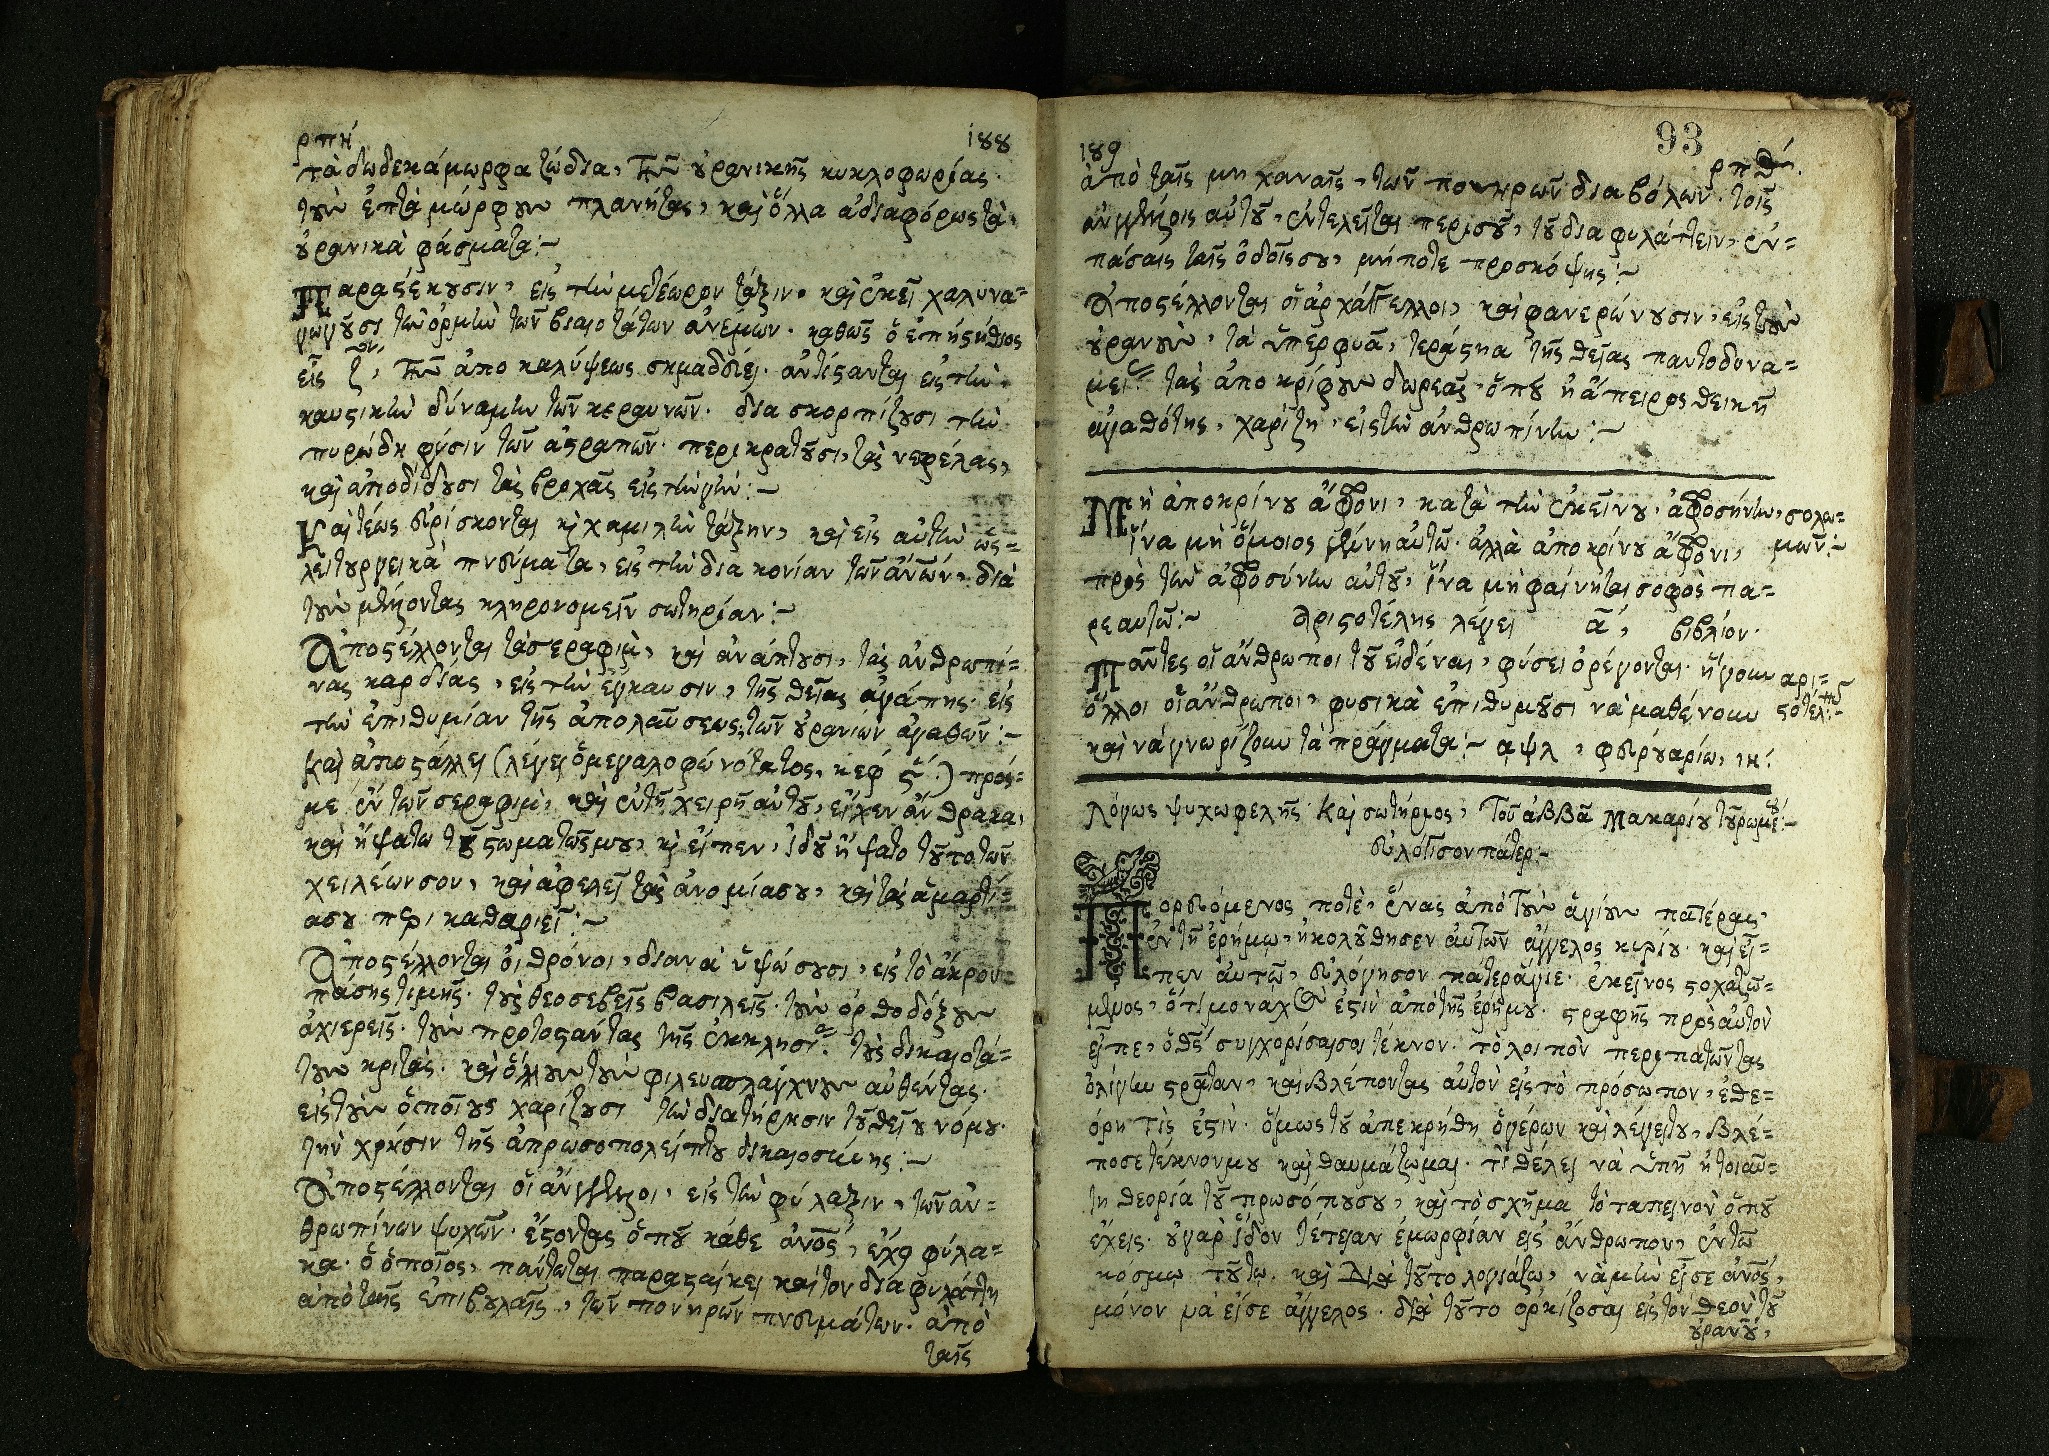 ρπή 188
τὰ δωδεκάμωρφα ζώδια, τῆς οὐρανικῆς κυκλοφωρίας.
τοὺς ἑπτὰ μώρφους πλανήτας, καὶ ὅλλα ἀδιαφόρως τὰ
οὐρανικὰ φάσματα:~
Παραστέκουσιν, εἰς τὴν μετέωρον τάξιν. καὶ ἐκεῖ χαλινα=
γωγοῦσι τὴν ὁρμὴν τῶν βιαιοτάτων ἀνέμων. καθῶς ὁ ἐπιστήθιος
εἰς ζ, τῆς ἀποκαλύψεως σημαδδιέι. ἀντίστανται εἰς τὴν
καυστικὴν δύναμιν τῶν κεραυνῶν. διασκορπίζουσι τὴν
πυρώδη φύσιν τῶν ἀστραπῶν. περικρατοῦσι, τὰς νεφέλας,
καὶ ἀποδίδουσι τὰς βροχὰς εἰς τὴν γῆν:~
Καὶ τέως εὑρίσκονται κὶ χαμιλὴν τάξην, καὶ εἰς αὐτὴν ὡς=
λειτουργεικὰ πνεύματα, εἰς τὴν διακονίαν τῶν ἀνων, διὰ
τοὺς μέλλοντας κληρονομεῖν σωτηρίαν:~
Ἀποστέλλονται τὰ σεραφὶμ, καὶ ἀνάπτουσι, τὰς ἀνθρωπί=
νας καρδίας, εἰς τὴν ἔγκαυσιν, τῆς θείας ἀγάπης. εἰς
τὴν ἐπιθυμίαν τῆς ἀπολαύσεως, τῶν οὐρανίων ἀγαθῶν:~
Καὶ ἀποστάλλει (λέγει ὁ μεγαλοφωνότατος, κεφ ς΄:) πρός=
με ἓν τῶν σεραφιμ, καὶ ἐν τῇ χειρῇ αὐτοῦ, εἶχεν ἄνθρακα,
καὶ ἥψατω τοῦ στωματώς μου, κὶ εἶπεν, ἰδοῦ ἥψατο τοῦτο τῶν
χειλέων σου, καὶ ἀφελεῖ τὰς ἀνομίας σου, καὶ τὰς ἁμαρτί=
ας σου περικαθαριεῖ:~
Ἀποστέλλονται οἱ θρόνοι, διανὰ ὑψώσουσι, εἰς τὸ ἄκρον
πάσης τιμῆς. τοὺς θεοσεβεῖς βασιλεῖς. τοὺς ὀρθοδόξους
ἀχιερεῖς. τοὺς προτοστάντας τῆς ἐκκλησίας. τοὺς δικαιοτά=
τους κριτάς. καὶ ὅλλους τοὺς φιλευσπλάγχνους αὐθέντας.
εἰς τοὺς ὁποίους χαρίζουσι τὴν διατήρησιν τοῦ θείου νόμου.
τὴν χρῆσιν τῆς ἀπρωσοπολείπτου δικαιοσύνης:~
Ἀποστέλλονται οἱ ἄγγελλοι, εἰς τὴν φύλαξιν, τῶν ἀν=
θρωπίνων ψυχῶν. ἔστοντας ὁποῦ κάθε ἀνος, ἔχει φύλα=
κα. ὁ ὁποῖος, πάντωται παραστέκει καὶ τον διαφυλάττη
ἀπὸ ταῖς ἐπιβουλαῖς, τῶν πονηρῶν πνευμάτων. ἀπὸ
ταῖς
189 93
ρπθ
ἀπὸ ταῖς μηχαναῖς, τῶν πονηρῶν διαβόλων. τοῖς
ἀγγέλλοις αὐτοῦ, ἐντελεῖται περὶ σοῦ, τοῦ διαφυλάττειν, ἐν=
πάσαις ταῖς ὁδοῖς σου, μήποτε προσκόψης:~
Ἀποστέλλονται οἱ ἀρχάγγελλοι, καὶ φανερώνουσιν, εἰς τοὺς
οὐρανοὺς, τὰ ὑπερφυᾶ, τεράστηα τῆς θείας παντοδυνα=
μεις τὰς ἀποκρίφους δωρεὰς. ὁποῦ ἡ ἄπειρος θεικὴ
ἀγαθότης, χαρίζη, εἰς τὴν ἀνθρωπίντω:~
Μὴ ἀποκρίνου ἄφρονι, κατὰ τὴν ἐκείνου, ἀφροσύνην, σολω=
ἵνα μὴ ὅμοιος γένη αὐτῶ. ἀλλὰ ἀποκρίνου ἄφρονι, μων:~
πρὸς τὴν ἀφροσύνην αὐτοῦ, ἵνα μὴ φαίνηται σοφὸς πα=
ρεαυτῶ:~ Ἀριστοτέλης λέγει α΄, βιβλίον.
Πάντες οἱ ἄνθρωποι τοῦ εἰδέναι, φύσει ὀρέγονται. ἤγουν αρι=
ὅλλοι οἱ ἄνθρωποι, φυσικὰ ἐπιθυμοῦσι νὰ μαθένουν στοτέλης:~
καὶ νὰ γνωρίζουν τὰ πράγματα:~ αψλ, φευρουαρίω, ιη:
Λόγως ψυχωφελῆς. Καὶ σωτήριος, Τοῦ ἀββᾶ Μακαρίου τοῦ ρωμαίου:~
εὐλόγισον πάτερ:~
Πορευόμενος ποτὲ, ἕνας ἀπὸ τοὺς ἁγίους πατέρας,
ἐν τῇ ἐρήμω, ἠκολούθησεν αὐτῶν ἄγγελος κυρίου. καὶ εἶ=
επεν αὐτῶ, εὐλόγησον πάτερ ἅγιε. ἐκεῖνος στοχαζώ=
μενος, ὅτι μοναχὸς ἐστὶν ἀπὸ τῆς ἐρήμου. στραφῆς πρὸς αὐτὸν
εἶπε, ὁ θς συγχορίσαι σοι τέκνον. τὸ λοιπὸν περιπατῶντας
ὀλίγην στράταν, καὶ βλέποντας αὐτὸν εἰς τὸ πρόσωπον, ἐθε=
όρη τίς ἐστίν. ὅμως τοῦ ἀπεκρήθη ὁ γέρων καὶ λέγει του, βλέ=
πο σε τέκνον μου καὶ θαυμάζωμαι. τί θέλει νὰ ὑπῆ ἡ τοιαύ=
τη θεορία τοῦ πρωσόπου σου, καὶ τὸ σχῆμα τὸ ταπεινὸν ὁποῦ
ἔχεις. οὐγαρ ἴδον τέτοιαν ἐμωρφίαν εἰς ἄνθρωπον, ἐν τῶ
κόσμω τούτω. καὶ διὰ τοῦτο λογιάζω, νὰ μὴν εἶσε ἀνος,
μόνον μὰ εἶσε ἄγγελος. διὰ τοῦτο ὁρκίζο σαι εἰς τον θεὸν τοῦ
οὐρανοῦ,